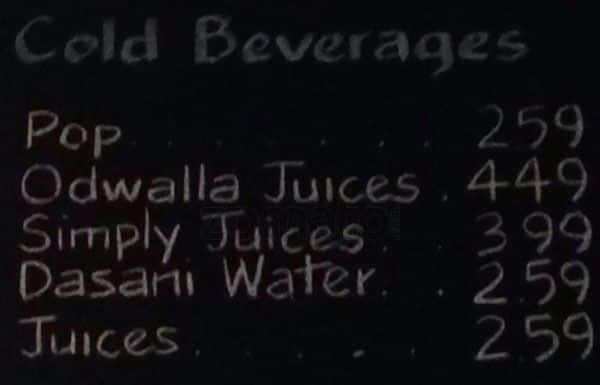 Cold Beverages
Pop . . . . . . . 259
Odwalla Juices . 449
Simply Juices . . 399
Dasani Water . . 2.59
Juices . . . . . 2.59